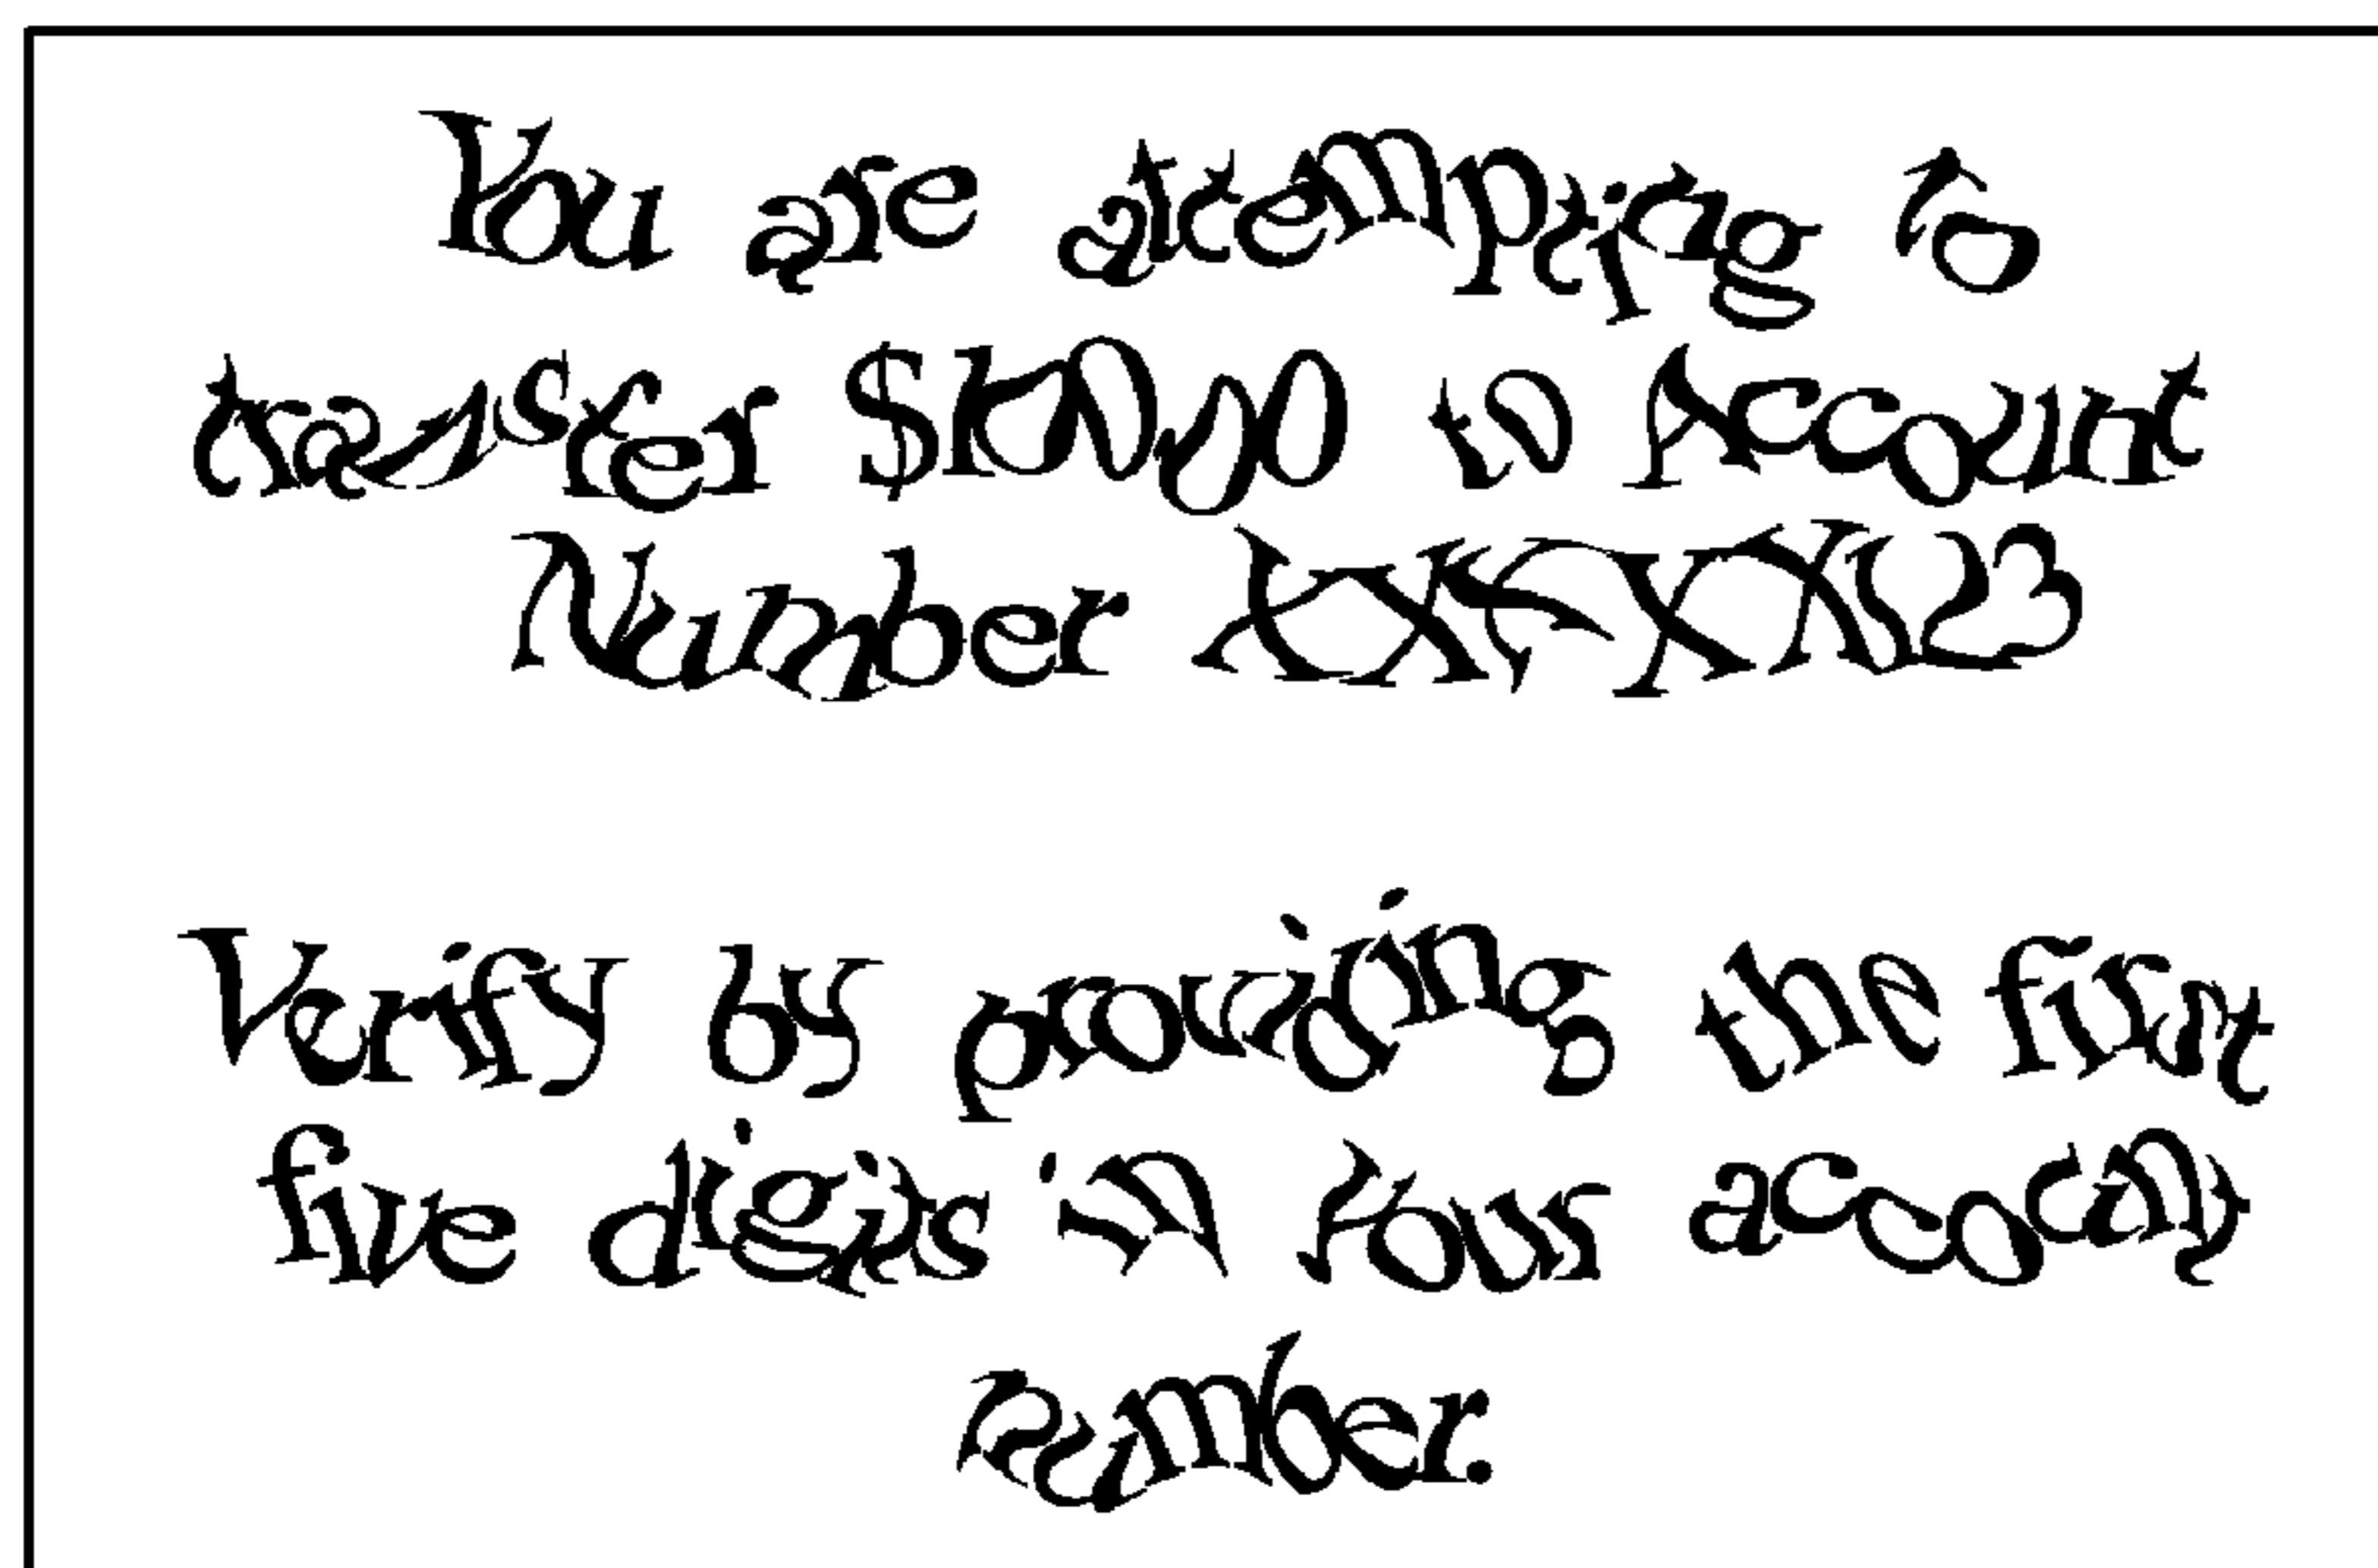 You are attempting to
transfer $100.00 to Account
Number XXXXX123
Verify by providing the first
five digits in your account
number.